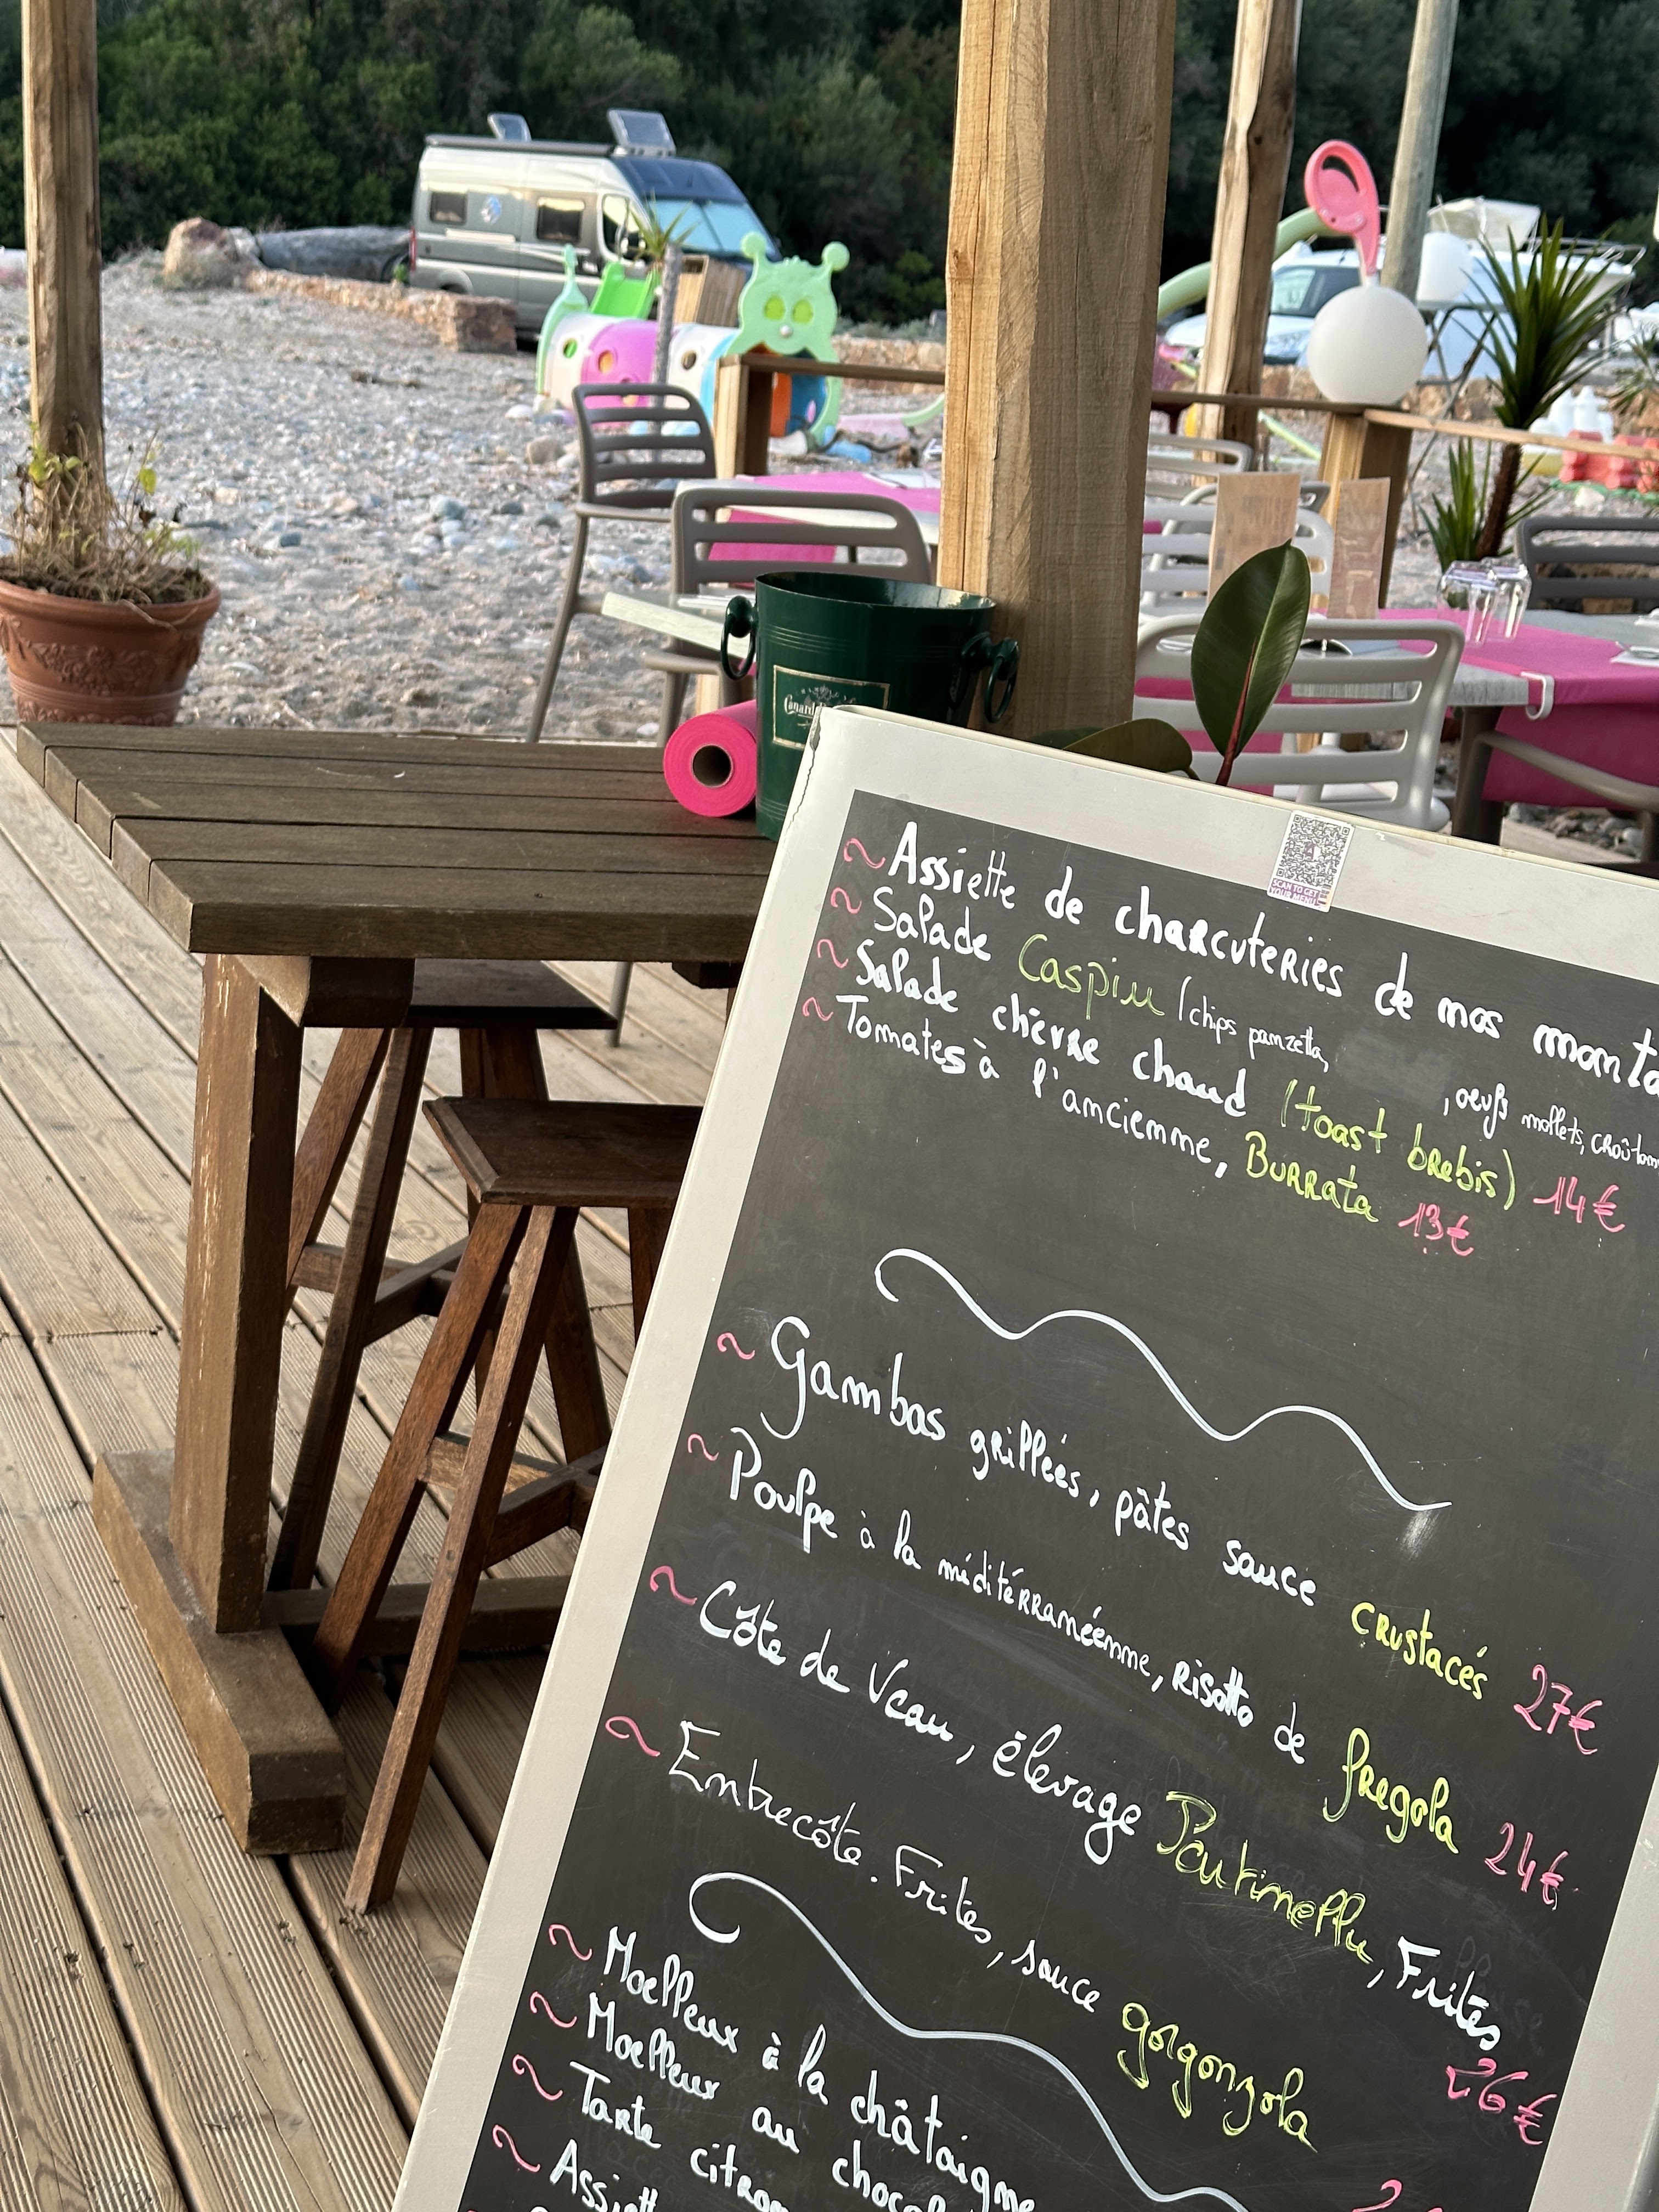 Canard
SCAN TO GET
YOUR MENU
~ Assiette de charcuteries de nos
~ Salade Caspiu (chips panzetta, , oeufs mollets,
~ Salade chèvre chaud (toast brebis) 14€
~ Tomates à l'ancienne, Burrata 13€
~ Gambas grillées, pâtes sauce crustacés 27€
~ Poulpe à la méditérranéenne, risotto de fregola 24€
~ Côte de Veau, élevage Pautinellu, Frites 26€
~ Entrecôte. Frites, sauce gorgonzola
~ Moelleux à la châtaigne
~ Moelleux au
~ Tarte
~